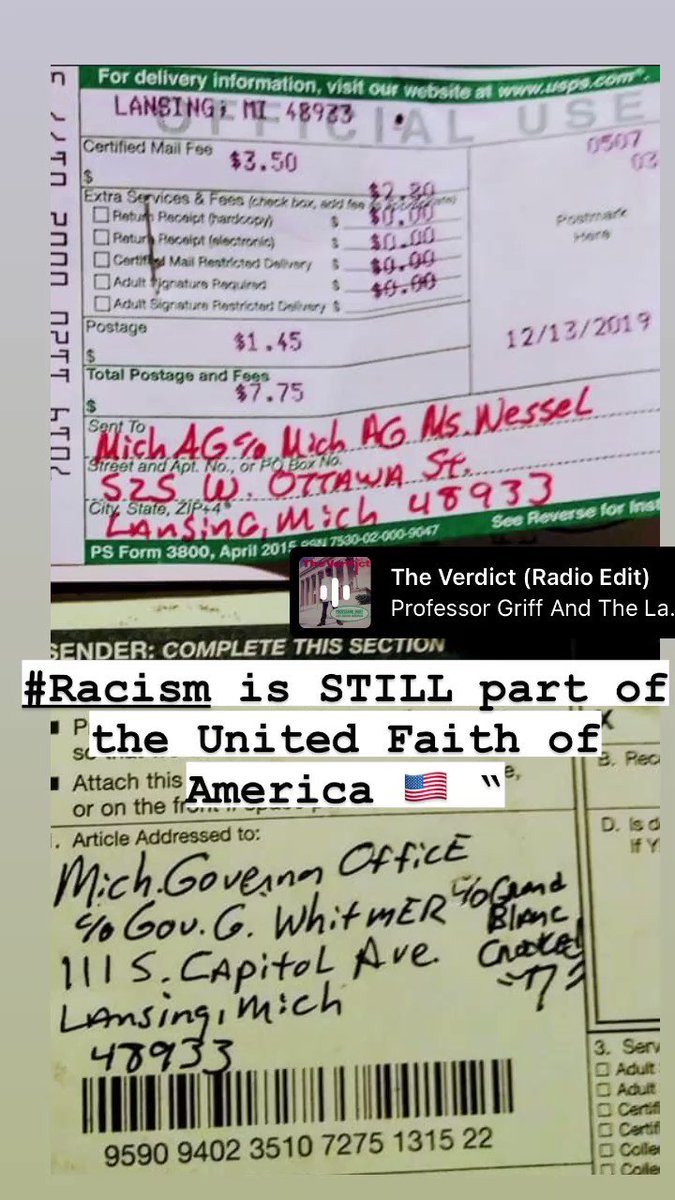 For delivery information, visit our website at www.usps.com®.
LANSING, MI 48933
OFFICIAL USE
Certified Mail Fee
$3.50
0507
03
$
$2.80
Extra Services & Fees (check box, add fee as appropriate)
Return Receipt (hardcopy) $ $0.00
Return Receipt (electronic) $ $0.00
Certified Mail Restricted Delivery $ $0.00
Adult Signature Required $ $0.00
Adult Signature Restricted Delivery $
Postmark
Here
Postage
$1.45
$
12/13/2019
Total Postage and Fees
$7.75
$
Sent To
Mich AG c/o Mich AG Ms. Nessel
Street and Apt. No., or PO Box No.
525 W. OTTAWA St.
City, State, ZIP+4®
Lansing, Mich 48933
PS Form 3800, April 2015 PSN 7530-02-000-9047
See Reverse for Inst
The Verdict
The Verdict (Radio Edit)
Professor Griff And The La...
SENDER: COMPLETE THIS SECTION
#Racism is STILL part of
the United Faith of
America 🇺🇸 “
Attach this
or on the
1. Article Addressed to:
Mich. Governor Office
c/o Gov. G. Whitmer
c/o Grand
Blanc
111 S. Capitol Ave.
Lansing, Mich
48933
9590 9402 3510 7275 1315 22
X
B. Rec
D. Is d
If Y
3. Serv
Adult
Adult
Certif
Certif
Colle
Colle